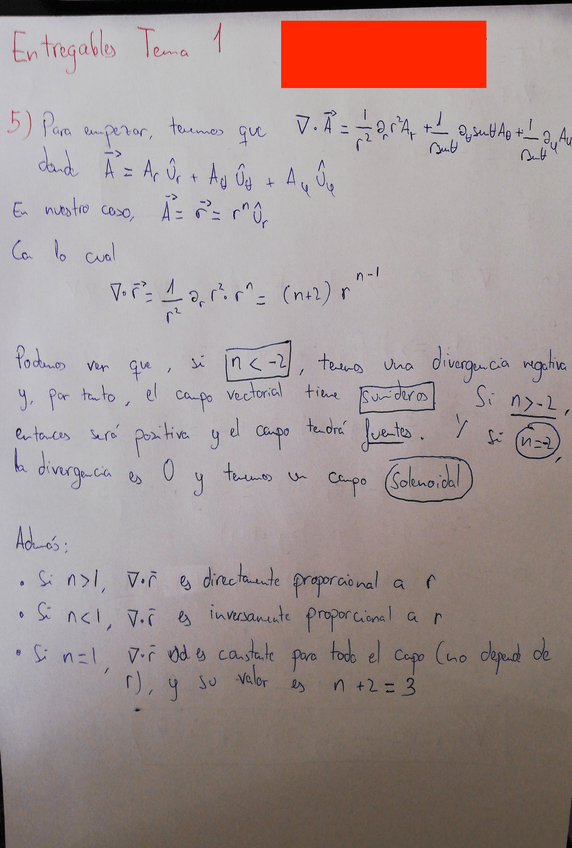 Entregables Tema 1
5) Para empezar, tenemos que ∇·A⃗ = 1/r² ∂r r²Ar + 1/(r senθ) ∂θ senθ Aθ + 1/(r senθ) ∂φ Aφ
donde A⃗ = Ar Ûr + Aθ Ûθ + Aφ Ûφ
En nuestro caso, A⃗ = r⃗ = rⁿ Ûr
Con lo cual
∇·r⃗ = 1/r² ∂r r²·rⁿ = (n+2) r^(n-1)
Podemos ver que, si n < -2, tenemos una divergencia negativa
y, por tanto, el campo vectorial tiene sumideros Si n > -2,
entonces será positiva y el campo tendrá fuentes. Y si n=-2,
la divergencia es 0 y tenemos un campo solenoidal
Además:
• Si n>1, ∇·r̄ es directamente proporcional a r
• Si n<1, ∇·r̄ es inversamente proporcional a r
• Si n=1, ∇·r̄ es constante para todo el capo (no depende de
r), y su valor es n+2 = 3